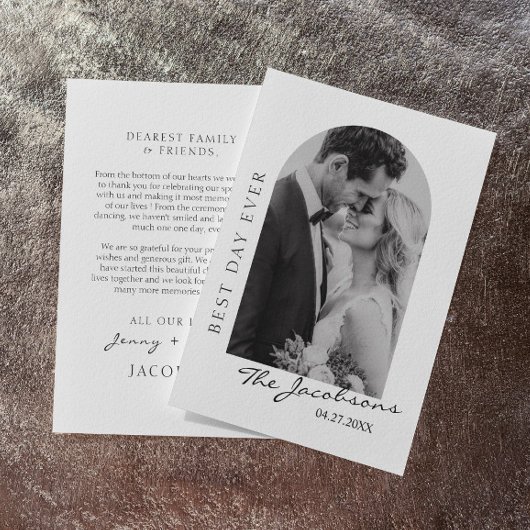 DEAREST FAMILY
& FRIENDS,
From the bottom of our hearts we
to thank you for celebrating our
with us and making it most
of our lives ! From the
dancing, we haven't smiled and
much one one day,
We are so grateful for your
wishes and generous gift. We
have started this beautiful
lives together and we look
many more memories
ALL OUR
Jenny +
BEST DAY EVER
The Jacobsons
04.27.20XX